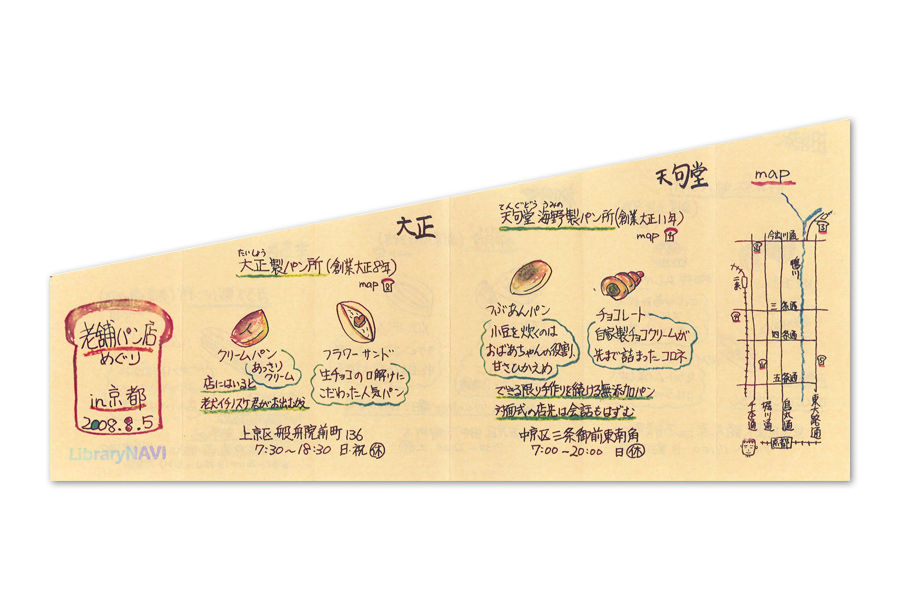 老舗パン店
めぐり
in京都
2008.8.5
LibraryNAVI
大正
たいしょう
大正製パン所(創業大正8年)
map 8
クリームパン
あっさり
クリーム
店にはいると
老犬イチノスケ君がお出迎え
フラワーサンド
生チョコの口解けに
こだわった人気パン
上京区般舟院前町136
7:30~18:30 日・祝休
天句堂
てんぐどう うみの
天句堂 海野製パン所(創業大正11年)
map 4
つぶあんパン
小豆を炊くのは
おばあちゃんの役割
甘さひかえめ
チョコレート
自家製チョコクリームが
先まで詰まったコロネ
できる限り手作りを続ける無添加パン
対面式の店先は会話もはずむ
中京区三条御前東南角
7:00~20:00 日休
map
今出川通
鴨川
二条
三条通
四条通
五条通
千本通
堀川通
烏丸通
東大路通
京都